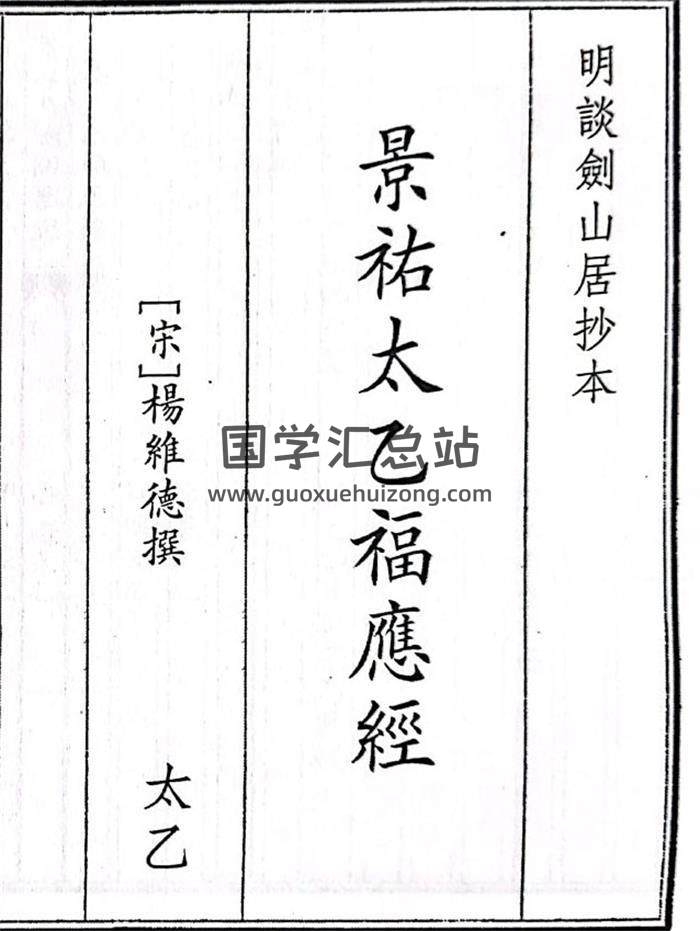 明談劍山居抄本
景祐太乙福應經
[宋]楊維德撰
太乙
国学汇总站
www.guoxuehuizong.com